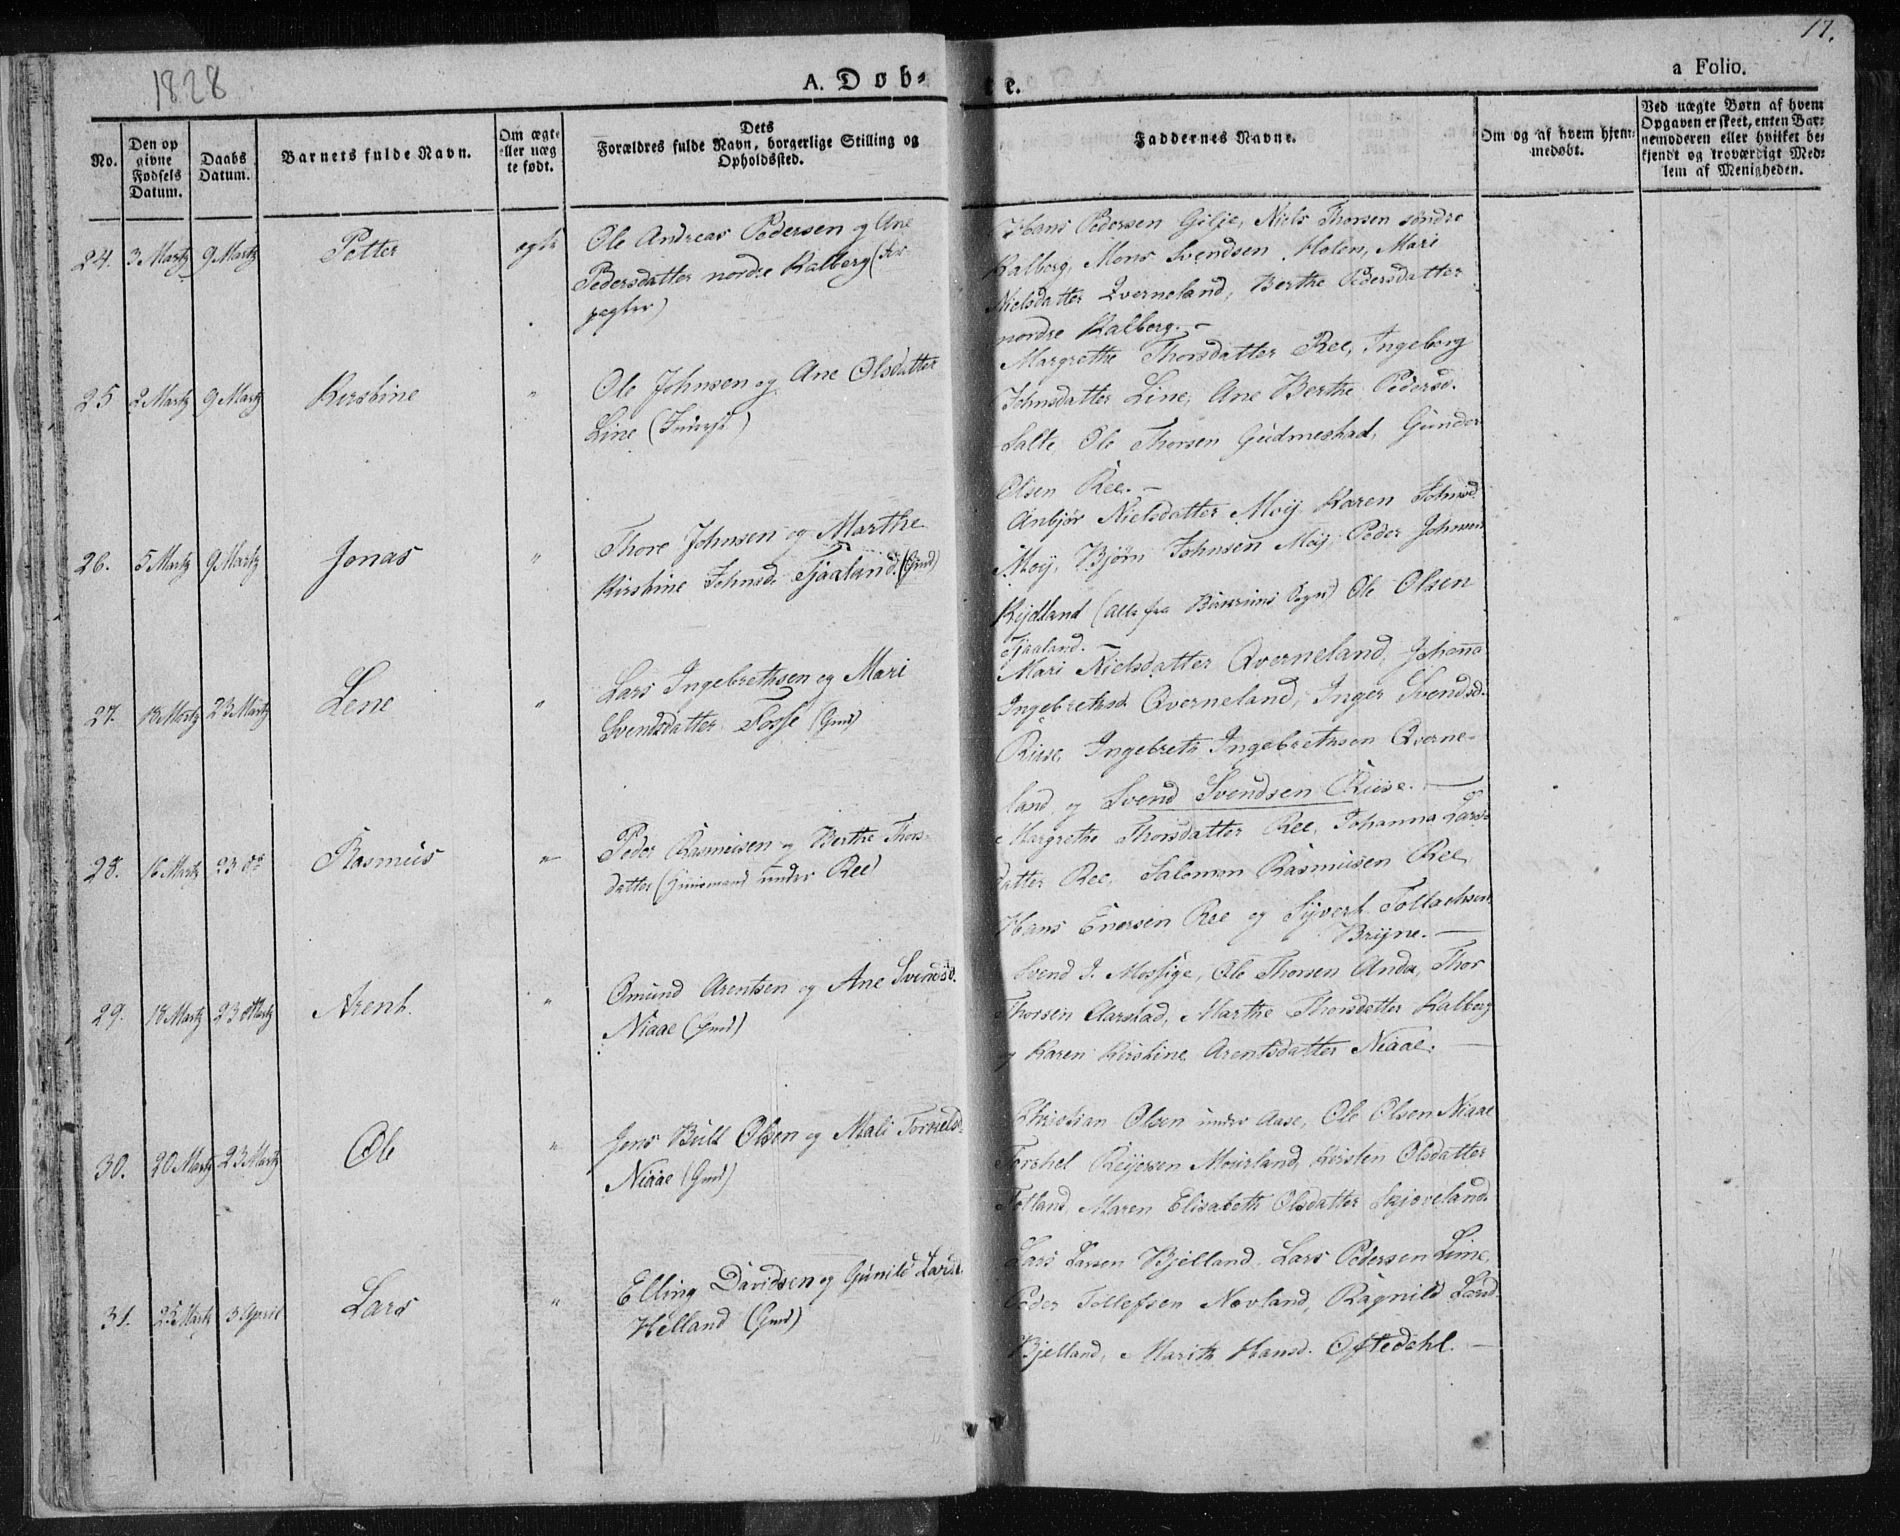 17.
1828
A. Døb-
te.
a Folio.
No.
Den op
givne
Fødsels
Datum.
Daabs
Datum.
Barnets fulde Navn.
Om ægte
eller uæg
te født.
Dets
Forældres fulde Navn, borgerlige Stilling og
Opholdssted.
Faddernes Navne.
Om og af hvem hjem-
medøbt.
Ved uægte Børn af hvem
Opgaven er skeet, enten Bar-
nemoderen eller hvilket be-
kjendt og troværdigt Med-
lem af Menigheden.
24. 3 Martz 9 Martz Petter ægte
Ole Andreas Pedersen og Ane
Pedersdatter nordre Kalberg (For
pagter)
Hans Pedersen Gilje, Niels Thorsen søndre
Kalberg, Mons Svendsen Holen, Mari
Nielsdatter Qverneland, Berthe Pedersdatter
nordre Kalberg. -
25 2 Martz 9 Martz Kirstine "
Ole Johnsen og Ane Olsdatter
Line
Margrethe Thorsdatter Ree, Ingeborg
Johnsdatter Line, Ane Berthe Pedersd.
Salte, Ole Thorsen Gudmestad, Gunder
Olsen Ree. -
26. 5 Martz 9 Martz Jonas "
Thore Johnsen og Marthe
Kirstine Johnsd. Tjaaland. (Gmd)
Anbjør Nielsdatter Moÿ, Karen Johnsd.
Moÿ, Bjørn Johnsen Moÿ, Peder Johnsen
Rÿdland (alle fra Sogn) Ole Olsen
Tjaaland. -
27. 18 Martz 23 Martz Lene "
Lars Ingebrethsen og Mari
Svendsdatter Fosse (Gmd)
Mari Nielsdatter Qverneland, Johanna
Ingebrethsd. Qverneland, Inger Svendsd.
Riise, Ingebreth Ingebrethsen Qverne-
land og Svend Svendsen Riise. -
28. 16 Martz 23 do Rasmus "
Peder Rasmusen og Berthe Thors-
datter (Huusmand under Ree)
Margrethe Thorsdatter Ree, Johanna Lars-
datter Ree, Salomon Rasmusen Ree,
Hans Enersen Ree og Sÿvert Tollachsen
Brÿne. -
29. 18 Martz 23 Martz Arent. "
Omund Arentsen og Ane Svendsd.
Niaae (Gmd)
Svend J. Mossige, Ole Thorsen Anda, Thor
Thorsen Aarstad, Marthe Thorsdatter Kalberg
og Karen Kirstine Arentsdatter Niaae. -
30. 20 Martz 23 Martz Ole "
Jens Bull Olsen og Mali Torkelsd.
Niaae (Gmd)
Christian Olsen under Aase, Ole Olsen Niaae
Torkel Reÿersen Mourland, Kirsten Olsdatter
Tolland, Maren Elisabeth Olsdatter Skjæveland.
31. 25 Martz 3 April Lars "
Elling Davidsen og Gunild Larsd.
Helland (Gmd)
Lars Larsen Bjelland, Lars Pedersen Lime,
Peder Tollefsen Novland, Ragnild Larsd.
Bjelland, Marith Hansd. Oftedahl. -